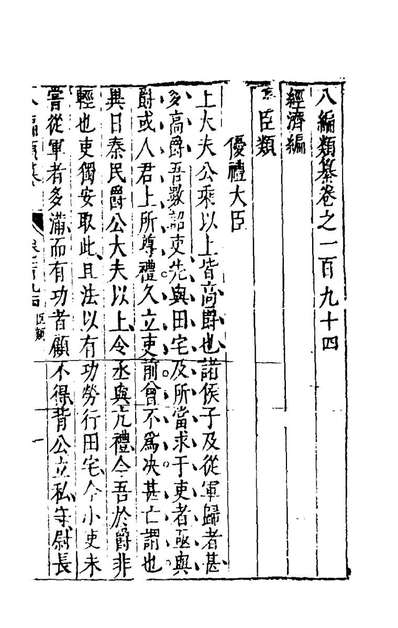 八編類纂卷之一百九十四
經濟編
臣類
優禮大臣
上大夫公乘以上皆高爵也諸侯子及從軍歸者甚
多高爵吾數詔吏先與田宅及所當求于吏者亟與
爵或人君上所尊禮久立吏前曾不爲决甚亡謂也
異日秦民爵公大夫以上令丞與亢禮今吾於爵非
輕也吏獨安取此且法以有功勞行田宅今小吏未
嘗從軍者多滿而有功者顧不得背公立私守尉長